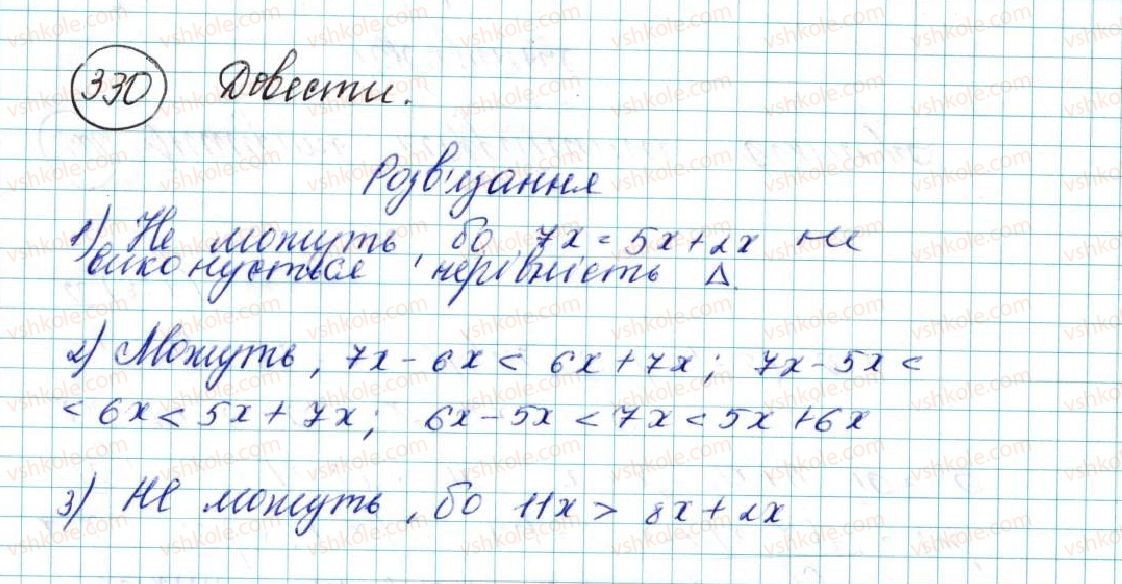 330 Довести.
Розв'язання
1) Не можуть бо 7x = 5x + 2x не
виконується нерівність Δ.
2) Можуть, 7x - 6x < 6x + 7x; 7x - 5x <
< 6x < 5x + 7x; 6x - 5x < 7x < 5x + 6x
3) Не можуть, бо 11x > 8x + 2x